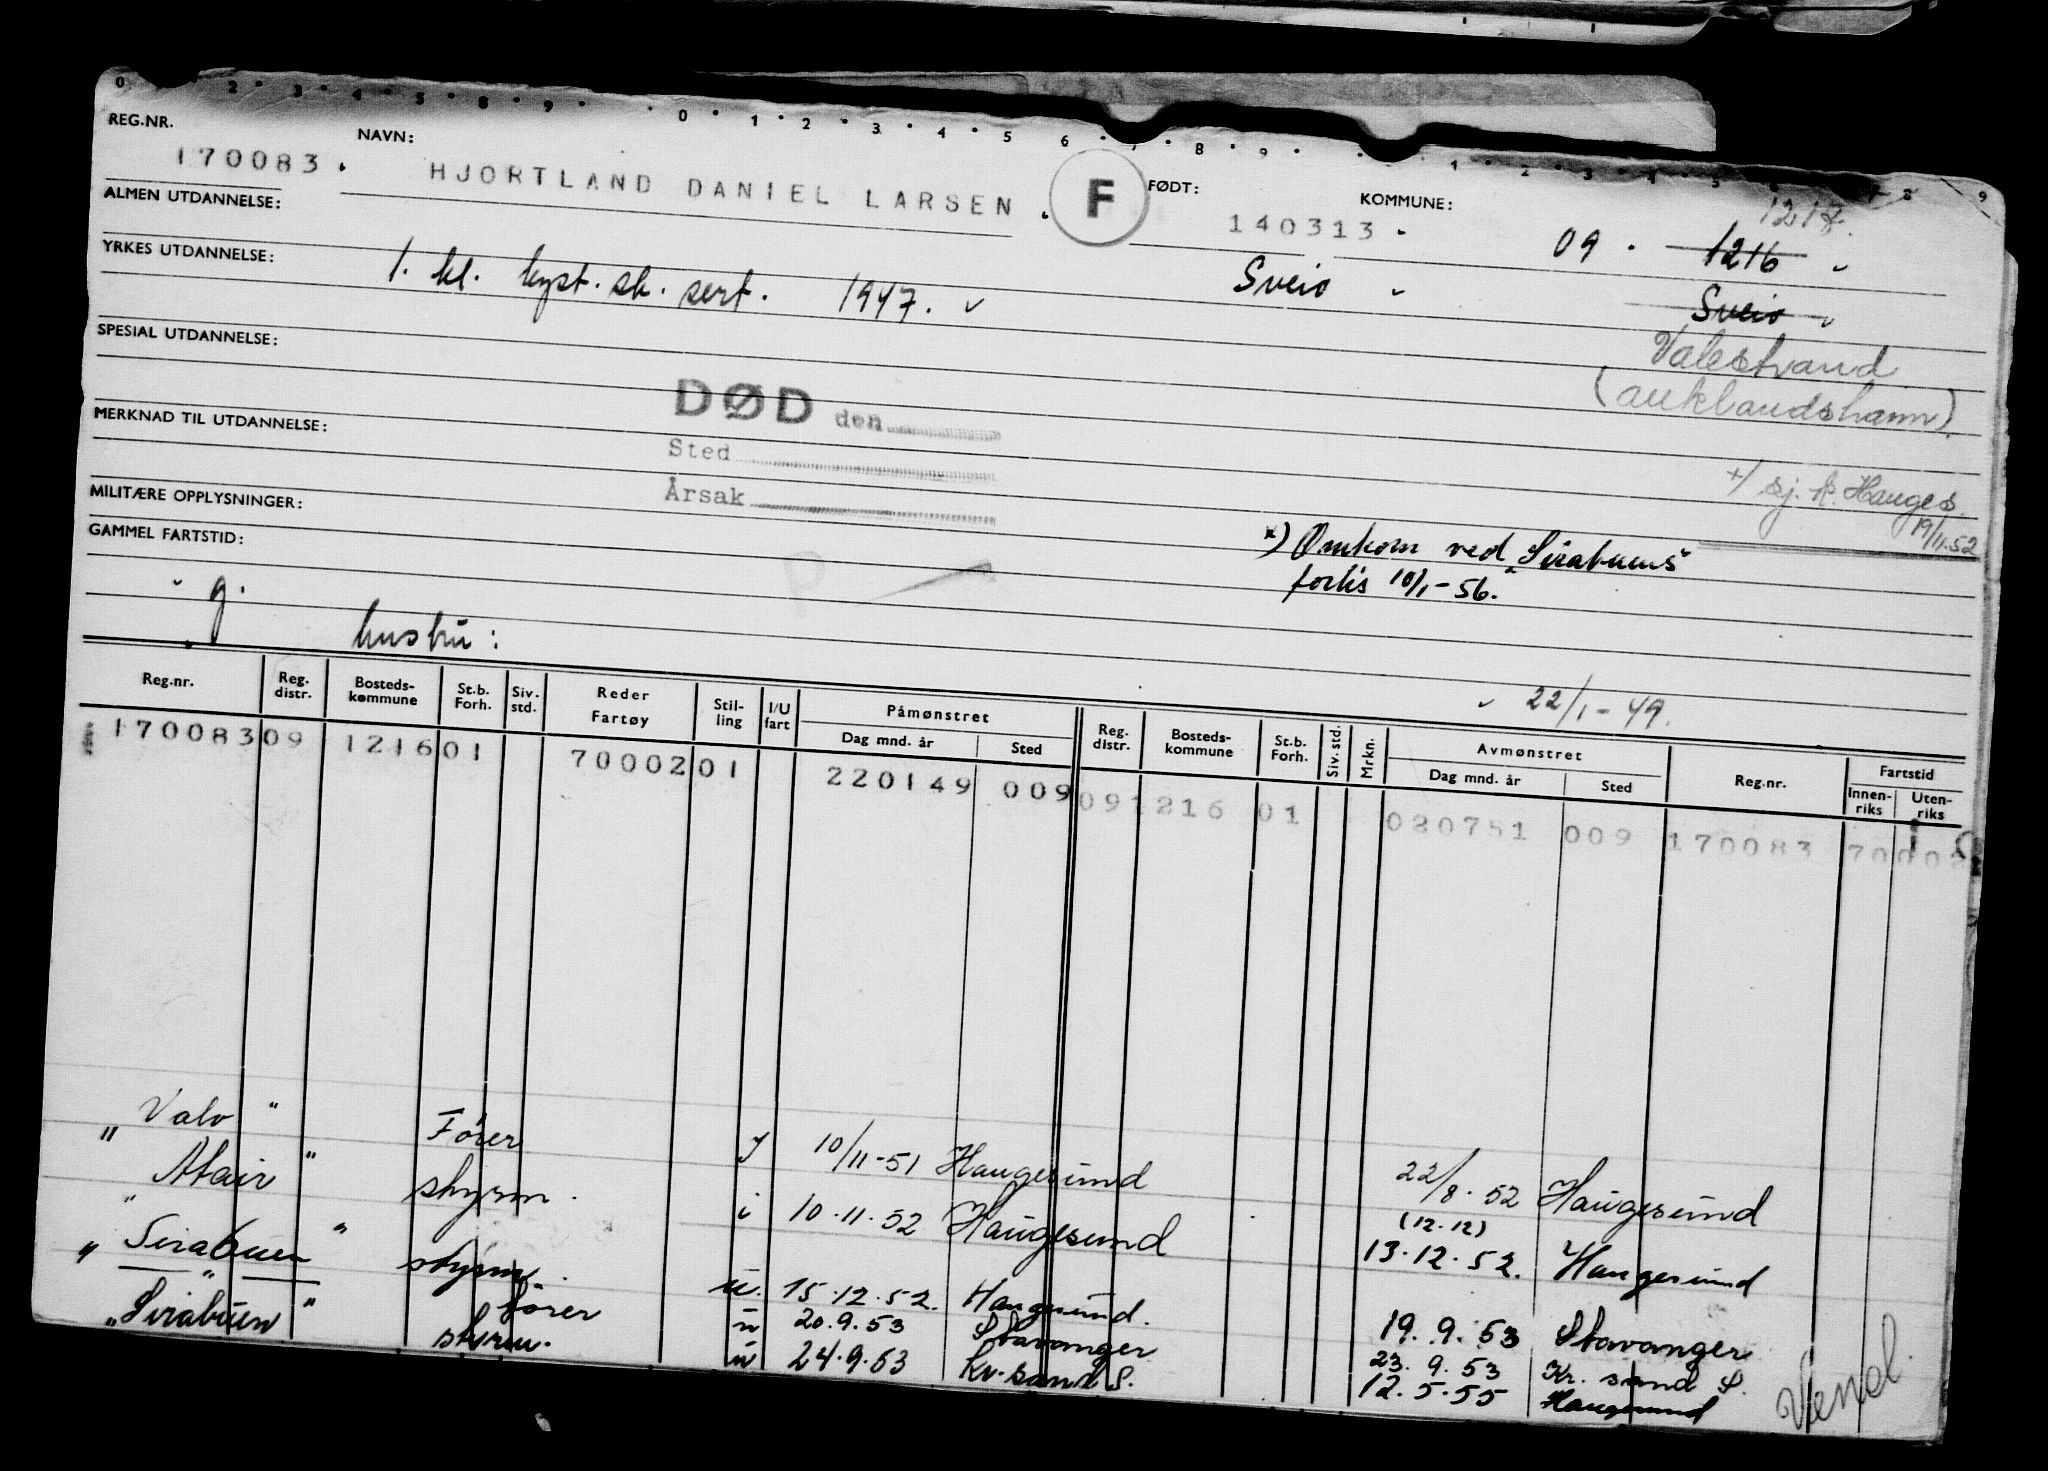 0 2 3 4 5 8 9 0 1 2 3 4 5 6 7 8 9 1 2 3 4 5 6 7 8 9
REG.NR. NAVN: FØDT: KOMMUNE:
170083. HJORTLAND DANIEL LARSEN. F 140313 09. 1216 1217.
ALMEN UTDANNELSE: Sveio Sveio
YRKES UTDANNELSE: 1. kl. kyst.sk. sert. 1947.
Valestrand
SPESIAL UTDANNELSE: (auklandshamn).
DØD den
MERKNAD TIL UTDANNELSE: Sted
+/ sj. k. Hauges.
19/11.52
MILITÆRE OPPLYSNINGER: Årsak
GAMMEL FARTSTID: x) Omkom ved "Sirabuens"
forlis 10/1-56.
g. hustru:
22/1-49.
Reg.nr. Reg. distr. Bosteds-kommune St.b. Forh. Siv. std. Reder Fartøy Stil-ling I/U fart Påmønstret Dag mnd. år Sted Reg. distr. Bosteds-kommune St.b. Forh. Siv. std. Mrkn. Avmønstret Dag mnd. år Sted Reg.nr. Fartstid Innen-riks Uten-riks
170083 09 1216 01 70002 01 220149 009 09 1216 01 080751 009 170083 70002
"Valo" Fører I 10/11-51 Haugesund 22/8.52 Haugesund
"Atair" styrm. i 10.11.52 Haugesund (12.12) 13.12.52. Haugesund
"Sirabuen" styrm. u. 15.12.52. Haugesund. 19.9.53 Stavanger
" fører u 20.9.53 Stavanger 23.9.53 Kr.sand S.
"Sirabuen" styrm. u 24.9.53 Kr.sand S. 12.5.55 Haugesund
Vend.